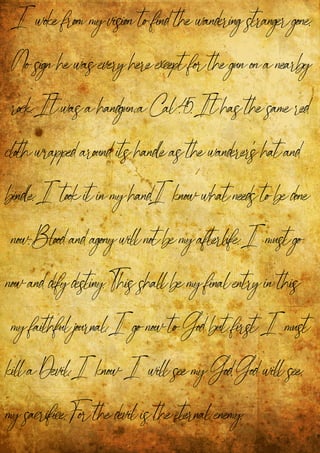 I woke from my vision to find the wandering stranger gone.
No sign he was every here except for the gun on a nearby
rock. It was a handgun,a Cal .45. It has the same red
cloth wrapped around its handle as the wanderer's hat and
bindle. I took it in my hand,I know what needs to be done
now. Blood and agony will not be my afterlife. I must go
now and defy destiny. This shall be my final entry in this
my faithful journal. I go now to God but first I must
kill a Devil. I know I will see my God. God will see,
my sacrifice. For the devil is, the eternal enemy.